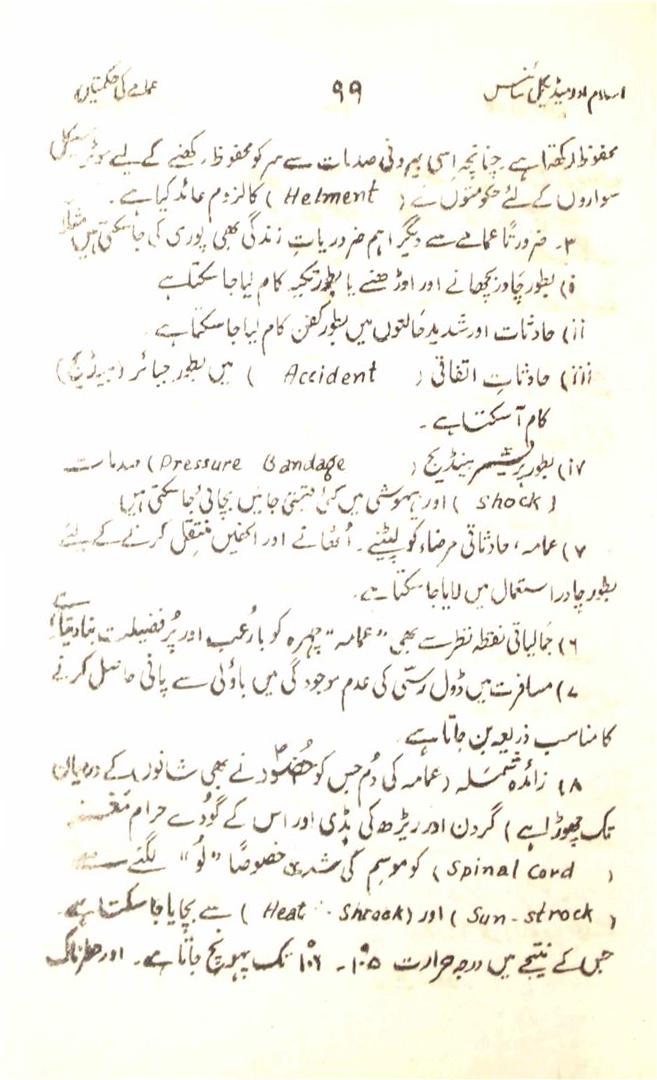 اسلام اور میڈیکل سائنس ۹۹ عمامے کی حکمتیں
محفوظ رکھتا ہے۔ چنانچہ اِسی بیرونی صدمات سے سر کو محفوظ رکھنے کے لیے موٹر سیکل
سواروں کے لئے حکومتوں نے (Helment) کا لزوم عائد کیا ہے۔
۳۔ ضرورتًا عمامے سے دیگر اہم ضروریاتِ زندگی بھی پوری کی جاسکتی ہیں مثلًا
i) بطور چادر بچھانے اور اوڑھنے یا بطور تکیہ کام لیا جا سکتا ہے
ii) حادثات اور شدید حالتوں میں بطور کفن کام لیا جا سکتا ہے۔
iii) حادثاتِ اتفاقی (Accident) میں بطور جبائر (بینڈیج)
کام آ سکتا ہے۔
iv) بطور پریشر بینڈیج (Pressure Bandage) صدمات
(Shock) اور بیہوشی میں کئی قیمتی جانیں بچائی جا سکتی ہیں
v) عمامہ، حادثاتی مرضاء کو لپیٹنے۔ اُٹھانے اور انھیں منتقل کرنے کے لئے
بطور چادر استعمال میں لایا جا سکتا ہے۔
۶) جمالیاتی نقطہ نظر سے بھی "عمامہ" چہرہ کو بارُعب اور پُر فضیلت بنا دیتا ہے
۷) مسافرت میں ڈول رسّی کی عدم موجودگی میں باؤلی سے پانی حاصل کرنے
کا مناسب ذریعہ بن جاتا ہے۔
۸) زائدہ شملہ (عمامہ کی دُم جس کو حضورؐ نے بھی شانوں کے درمیان
تک چھوڑا ہے) گردن اور ریڑھ کی ہڈی اور اس کے گودے حرام مغز
(Spinal Cord) کو موسم کی شدت خصوصًا "لُو" لگنے سے
(Sun-strock) اور (Heat-Shrock) سے بچایا جا سکتا ہے۔
جس کے نتیجے میں درجہ حرارت ۱۰۵۔ ۱۰۶ تک پہونچ جاتا ہے۔ اور خطرناک